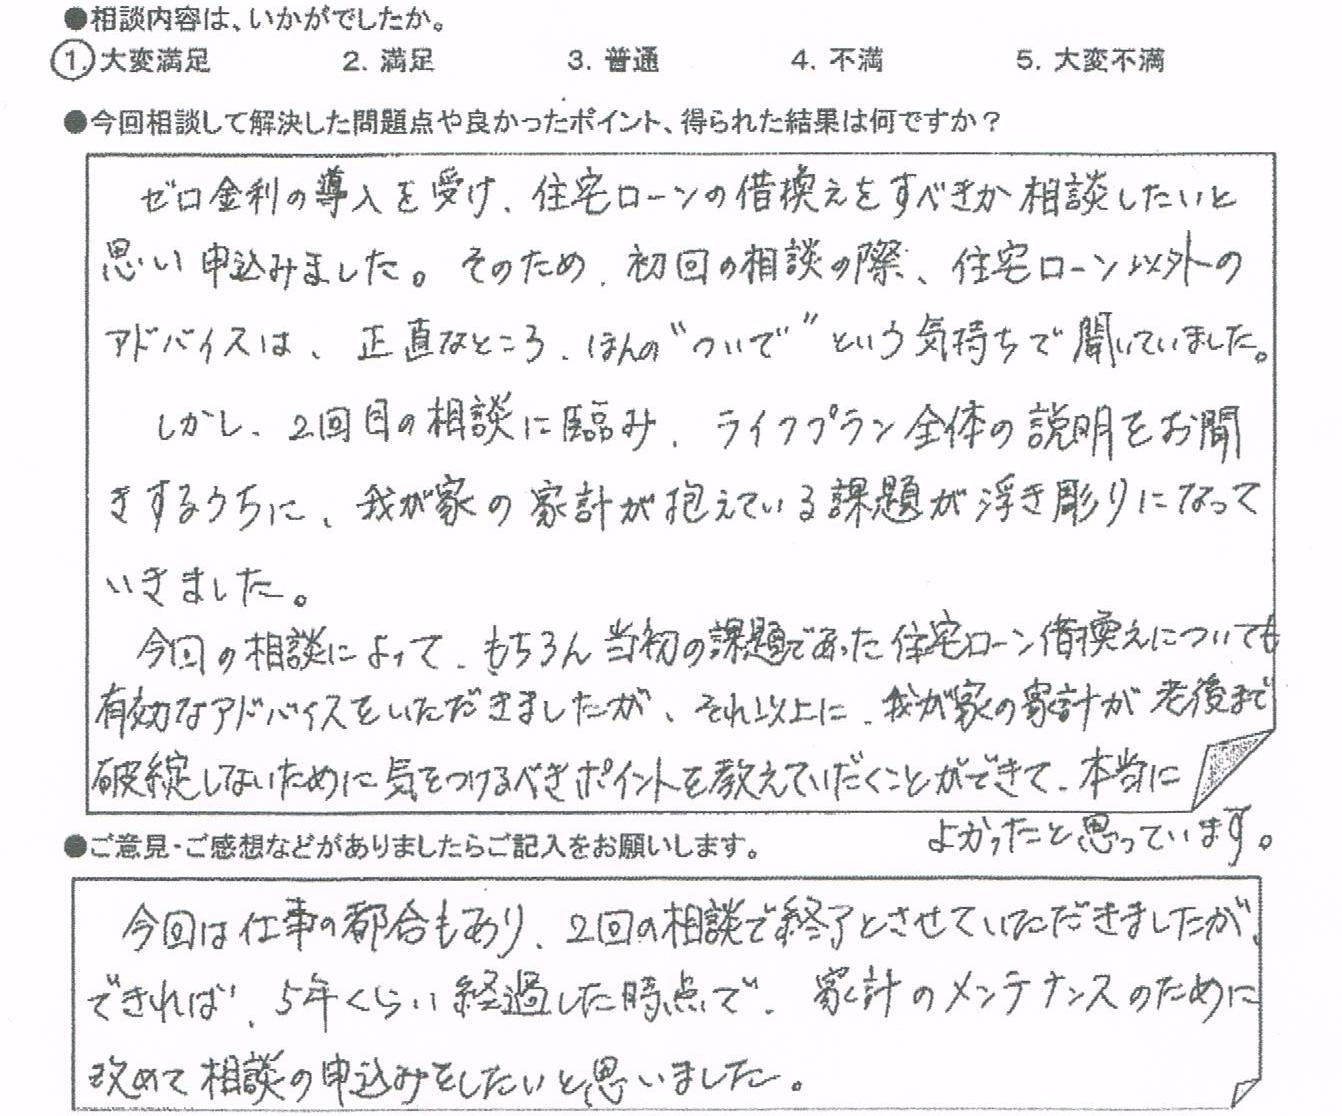 ●相談内容は、いかがでしたか。
1. 大変満足 2. 満足 3. 普通 4. 不満 5. 大変不満
●今回相談して解決した問題点や良かったポイント、得られた結果は何ですか？
ゼロ金利の導入を受け、住宅ローンの借換えをすべきか相談したいと
思い申込みました。そのため、初回の相談の際、住宅ローン以外の
アドバイスは、正直なところ、ほんの"ついで"という気持ちで聞いていました。
しかし、2回目の相談に臨み、ライフプラン全体の説明をお聞
きするうちに、我が家の家計が抱えている課題が浮き彫りになって
いきました。
今回の相談によって、もちろん当初の課題であった住宅ローン借換えについても
有効なアドバイスをいただきましたが、それ以上に、我が家の家計が老後まで
破綻しないために気をつけるべきポイントを教えていただくことができて、本当に
よかったと思っています。
●ご意見・ご感想などがありましたらご記入をお願いします。
今回は仕事の都合もあり、2回の相談で終了とさせていただきましたが、
できれば、5年くらい経過した時点で、家計のメンテナンスのために
改めて相談の申込みをしたいと思いました。